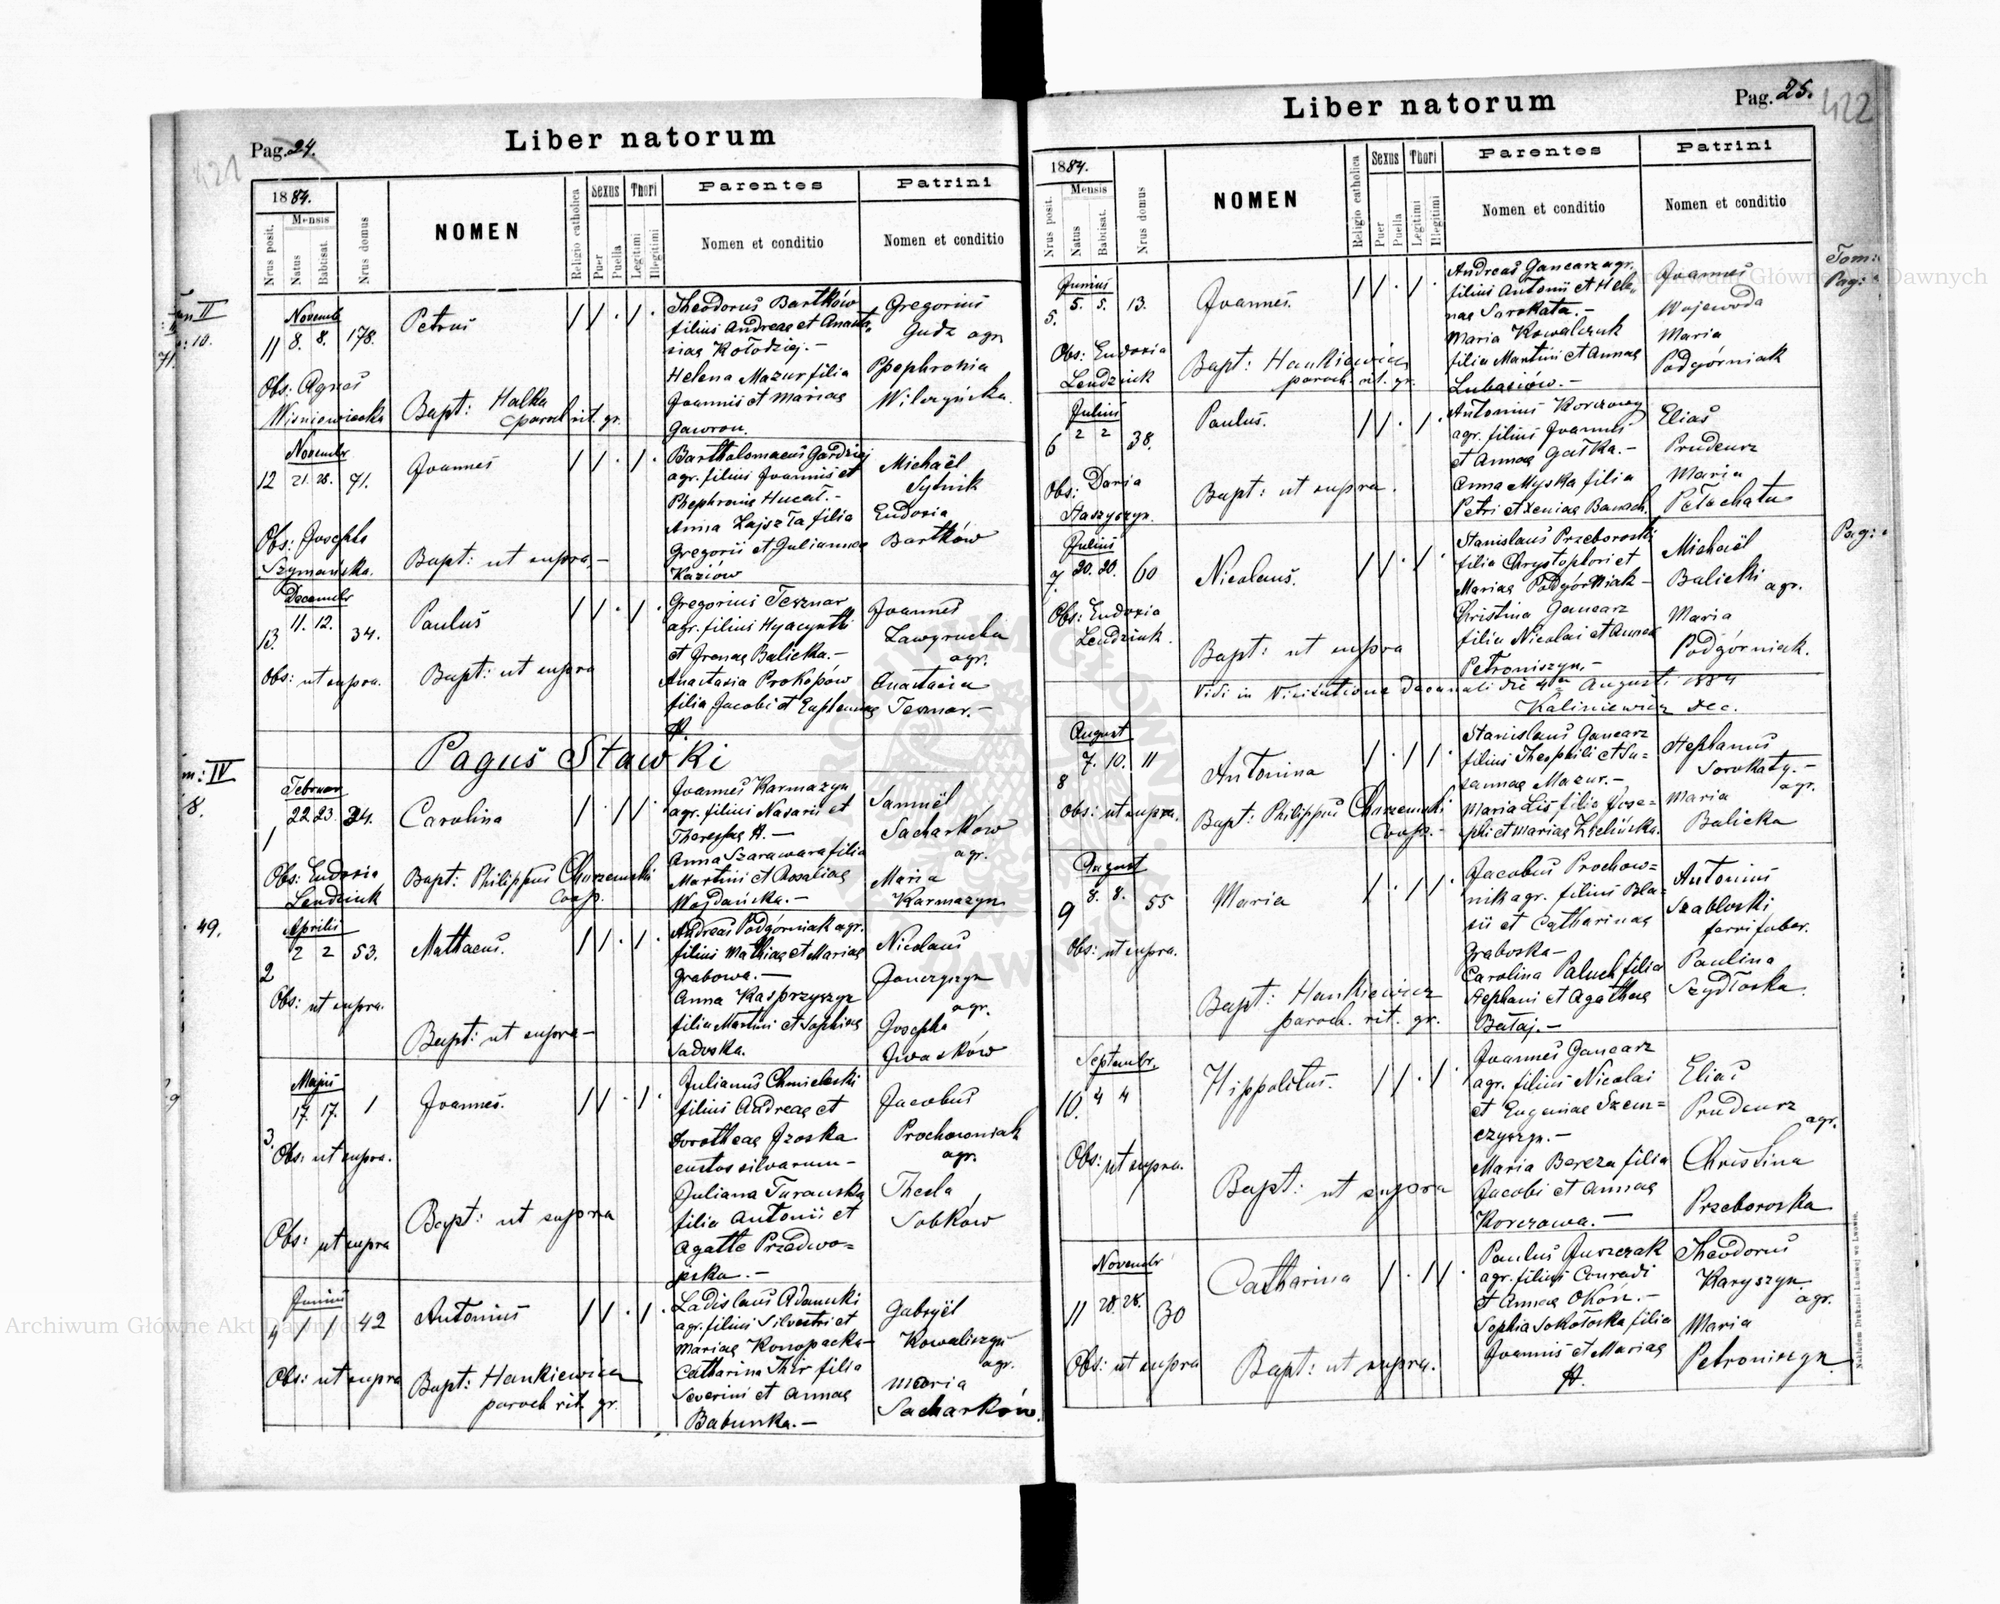 Liber natorum
Pag. 24.
421
1884.
Mensis
Nrus posit.
Natus
Babtisat.
Nrus domus
NOMEN
Religio catholica
Sexus
Puer
Puella
Thori
Legitimi
Illegitimi
Parentes
Nomen et conditio
Patrini
Nomen et conditio
Novemb
11 8. 8. 178.
Petrus
Theodorus Bartków
filius Andreae et Anasta-
siae Kołodziej. –
Helena Mazur filia
Joannis et Mariae
Gawron.
Gregorius
Gudz agr
Phephronia
Wilczyńska.
Obs: Agnes
Wisniewiecka
Bapt: Halka
paroch rit. gr.
Novembr
12 21. 28. 71.
Joannes
Bartholomaeus Gardziej
agr. filius Joannis et
Phephronie Hucal. –
Anna Zajszła filia
Gregorii et Juliannae
Kaziów
Michaël
Sytnik
Eudoxia
Bartków
Obs: Josepha
Szymańska.
Bapt: ut supra, –
Decembr
13. 11. 12. 34.
Paulus
Gregorius Tesznar
agr. filius Hyacynthi
et Irenae Balicka. –
Anastasia Prokopów
filia Jacobi et Euphemiae
Joannes
Zawyrucha
agr.
Anastasia
Tesznar. –
Obs: ut supra.
Bapt: ut supra
Pagus Stawki
m: IV
8.
Februar
1 22 23. 34.
Carolina
Joannes Karmazyn
agr. filius Nasarii et
Theresiae H. –
Anna Szarawara filia
Martini et Rosaliae
Wojdańska. –
Samuël
Sacharków
agr.
Maria
Karmazyn
Obs: Eudoxia
Lendziuk
Bapt: Philippus Churzemski
Coop.
49.
Aprilis
2 2 2 53.
Mathaeus.
Andreas Podgórniak agr.
filius Mathiae et Mariae
Grabowa. –
Anna Kasprzyszyn
filia Martini et Sophiae
Sadoska.
Nicolaus
Gonczyszyn
agr.
Josepha
Iwasków
Obs: ut supra.
Bapt: ut supra –
Majus
3. 17. 17. 1
Joannes.
Julianus Chmieleski
filius Andreae et
Dorotheae Izoska
custos silvarum –
Juliana Turanska
filia Antonii et
Agathe Przedwo=
jska. –
Jacobus
Prochowniak
agr.
Thecla
Sobków
Obs: ut supra.
Bapt: ut supra
Obs: ut supra
Junius
4 1 1 42
Antonius
Ladislaus Adamski
agr. filius Silvestri et
Mariae Konopacka –
Catharina Thir filia
Severini et Annae
Babunka. –
Gabryël
Kowaliszyn
agr.
Maria
Sacharków.
Obs: ut supra
Bapt: Hankiewicz
paroch rit. gr.
Liber natorum
Pag. 25.
422
1884.
Mensis
Nrus posit.
Natus
Babtisat.
Nrus domus
NOMEN
Religio catholica
Sexus
Puer
Puella
Thori
Legitimi
Illegitimi
Parentes
Nomen et conditio
Patrini
Nomen et conditio
Tom:
Pag:
Junius
5. 5. 5. 13.
Joannes.
Andreas Gancarz agr.
filius Antonii et Hele-
nae Sorokata. –
Maria Kowalczuk
filia Martini et Annae
Lubasiów. –
Joannes
Wojewoda
Maria
Podgórniak
Obs: Eudoxia
Lendziuk
Bapt: Hankiewicz
paroch. rit. gr.
Julius
6 2 2 38.
Paulus.
Antonius Korczowy
agr. filius Joannis
et Annae Gałka. –
Anna Myska filia
Petri et Xeniae Banach.
Elias
Prudeusz
Maria
Pełechata
Obs: Daria
Staszyszyn.
Bapt: ut supra.
Pag:
Julius
7. 20. 20. 60
Nicolaus.
Stanislaus Przeboroski
filia Chrystophori et
Mariae Podgórniak –
Christina Gancarz
filia Nicolai et Annae
Petroniszyn. –
Michaël
Balicki
agr.
Maria
Podgórniak.
Obs: Eudoxia
Lendziuk.
Bapt: ut supra
Vidi in Visitatione Decanali die 4ta Augusti 1884
Kaliniewicz Dec.
August
8 7. 10. 11
Antonina
Stanislaus Gancarz
filius Theophili et Su=
sannae Mazur. –
Maria Lis filia Jose=
phi et Mariae Zielińska.
Stephanus
Sorokaty. –
agr.
Maria
Balicka
Obs: ut supra.
Bapt: Philippus Churzemski
Coop. –
August
9 8. 8. 55
Maria
Jacobus Prochow=
nik agr. filius Bla=
sii et Catharinae
Graboska –
Carolina Paluch filia
Stephani et Agathae
Bataj. –
Antonius
Szabłoski
ferri faber.
Paulina
Szydłoska.
Obs: ut supra.
Bapt: Hankiewicz
paroch. rit. gr.
Septembr.
10. 4 4
Hippolitus.
Joannes Gancarz
agr. filius Nicolai
et Eugeniae Szem=
czyszyn. –
Maria Bereza filia
Jacobi et Annae
Korczowa. –
Elias
Prudeusz
agr.
Christina
Przeboroska
Obs: ut supra.
Bapt: ut supra
Novembr
11 28. 28. 30
Catharina
Paulus Juszczak
agr. filius Conradi
et Annae Okoń. –
Sophia Sokołoska filia
Joannis et Mariae
H.
Theodorus
Karyszyn
agr.
Maria
Petroniszyn
Obs: ut supra
Bapt: ut supra.
Nakładem Drukarni Ludowej we Lwowie.
Archiwum Główne Akt Dawnych
Archiwum Główne Akt Dawnych
ARCHIWUM GŁÓWNE AKT DAWNYCH